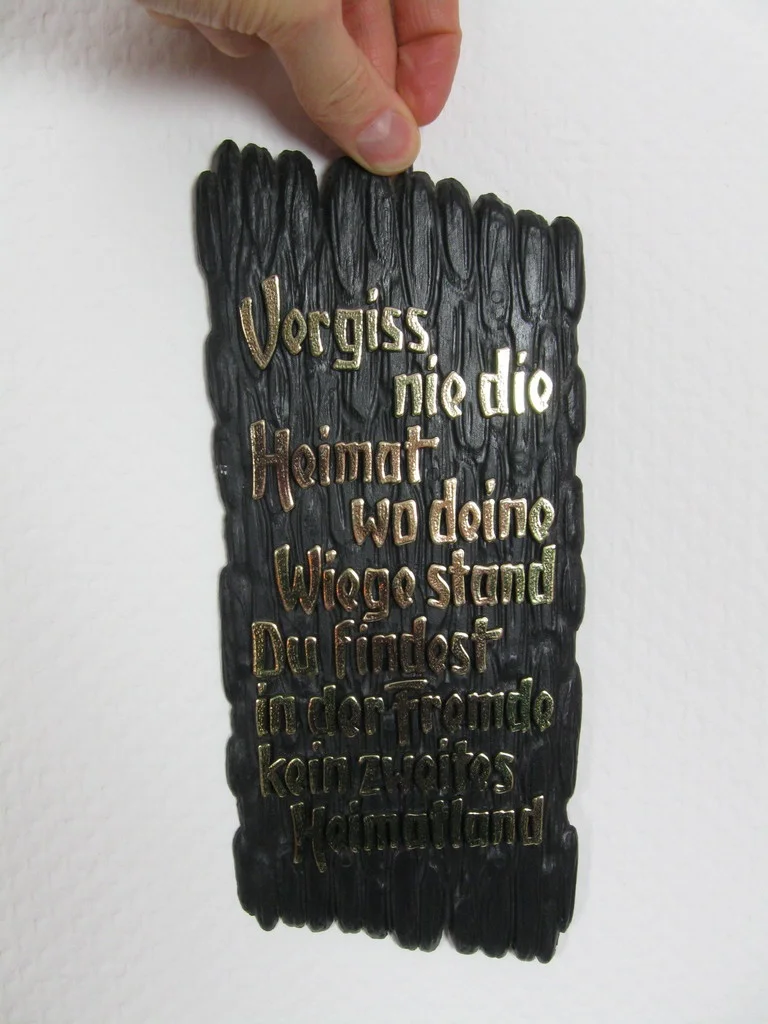 Vergiss
nie die
Heimat
wo deine
Wiege stand
Du findest
in der Fremde
kein zweites
Heimatland